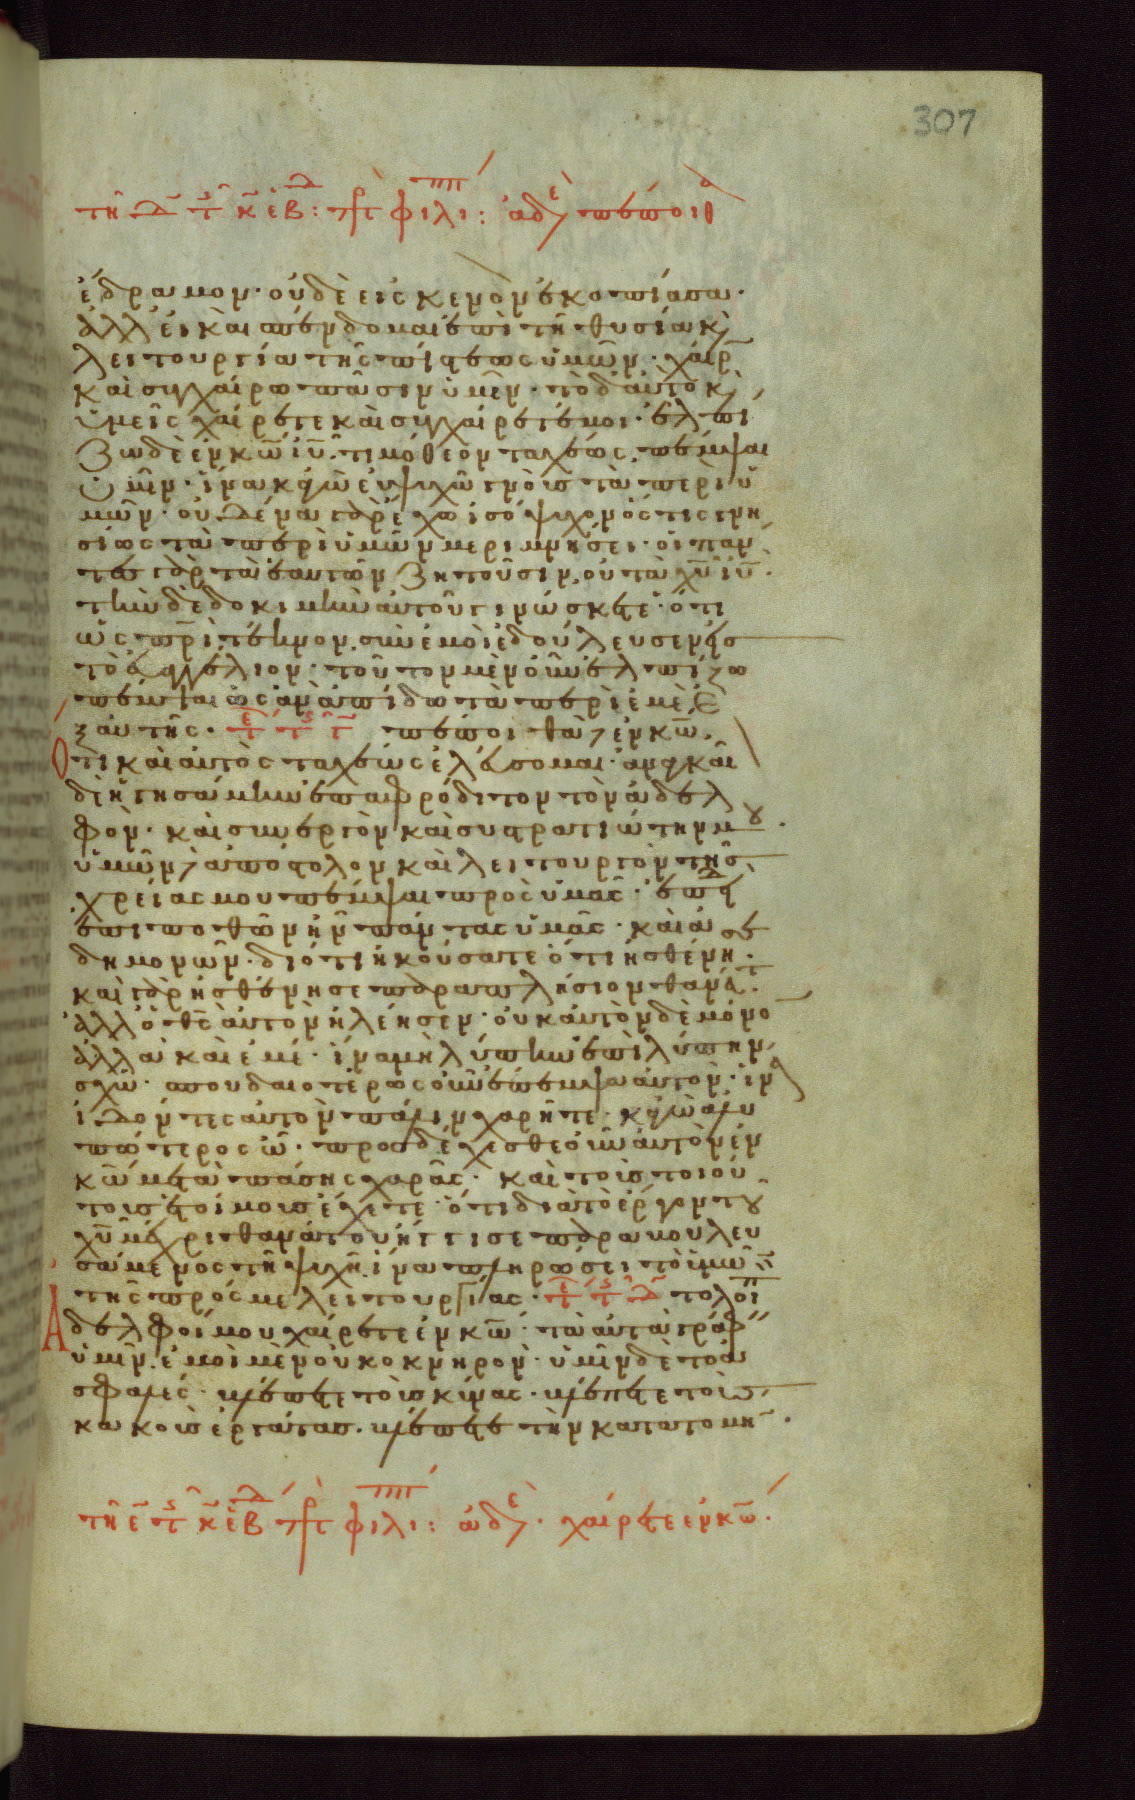 307
τῇ δ τ̅ κ̅ ἑβδ: πρ φιλι: ἀδε πέποιθα
ἔδραμον· οὐδὲ εἰς κενὸν ἐκοπίασα·
ἀλλ' εἰ καὶ σπένδομαι ἐπὶ τῇ θυσία κ
λειτουργία τῆς πίστεως ὑμῶν· χαίρ
καὶ συγχαίρω πᾶσιν ὑμῖν· τὸ δ' αυτὸ κ
ὑμεῖς χαίρετε καὶ συγχαίρετέ μοι· ἐλπί
ζω δὲ ἐν κ̅ω̅ ι̅υ̅· τιμόθεον ταχέως πέμψαι
ὑμῖν· ἵνα κἀγὼ εὐψυχῶ γνοὺς τὰ περὶ ὑ
μῶν· οὐδένα γὰρ ἔχω ἰσόψυχον ὅς τις γνη
σίως τὰ περὶ ὑμῶν μεριμνήσει· οἱ πάν
τες γὰρ τὰ ἑαυτῶν ζητοῦσιν, οὐ τὰ χ̅υ̅ ι̅υ̅·
τὴν δὲ δοκιμὴν αὐτοῦ γινώσκετε· ὅτι
ὡς π̅ρ̅ὶ τέκνον σὺν ἐμοὶ ἐδούλευσεν εἰς
τὸ εὐαγγέλιον· τοῦτον μὲν οὖν ἐλπίζω
πέμψαι ὡς ἂν ἀπίδω τὰ περὶ ἐμὲ, ἐ
ξαυτῆς· πέποιθα ἐν κ̅ω̅·
Ὅτι καὶ αὐτὸς ταχέως ἐλεύσομαι· ἀναγκαῖ
δὲ ἡγησάμην ἐπαφρόδιτον τὸν ἀδελ
φὸν· καὶ συνεργὸν καὶ συστρατιώτην μου·
ὑμῶν ἀπόστολον καὶ λειτουργὸν τῆς
χρείας μου πέμψαι πρὸς ὑμᾶς· ἐπειδὴ
ἐπιποθῶν ἦν πάντας ὑμᾶς· καὶ ἀ
δημονῶν· διότι ἠκούσατε ὅτι ἠσθένη·
καὶ γὰρ ἠσθένησε παραπλήσιον θανάτ·
ἀλλ' ὁ θ̅ς̅ αὐτὸν ἠλέησεν· οὐκ αὐτὸν δὲ μόνο
ἀλλὰ καὶ ἐμέ· ἵνα μὴ λύπην ἐπὶ λύπην
σχῶ· σπουδαιοτέρως οὖν ἔπεμψα αὐτὸν· ἵν
ἰδόντες αὐτὸν πάλιν χαρῆτε· κἀγὼ ἀλυ
πότερος ὦ· προσδέχεσθε οὖν αὐτὸν ἐν
κ̅ω̅ μετὰ πάσης χαρᾶς· καὶ τοὺς τοιού
τους ἐντίμους ἔχετε· ὅτι διὰ τὸ ἔργον τοῦ
χ̅υ̅ μέχρι θανάτου ἤγγισε παραβουλευ
σάμενος τῇ ψυχῇ ἵνα πληρώσει τὸ ὑμῶν
τῆς πρός με λειτουργίας· τὸ λοι
Ἀδελφοί μου χαίρετε ἐν κ̅ω̅· τὰ αὐτὰ γράφ
ὑμῖν ἐμοὶ μὲν οὐκ ὀκνηρὸν· ὑμῖν δὲ τὸ ἀ
σφαλές· βλέπετε τοὺς κύνας· βλέπετε τοὺς
κακοὺς ἐργάτας· βλέπετε τὴν κατατομὴ·
τῇ ε τ̅ κ̅ ἑβδ πρ φιλι: ἀδε· χαίρετε ἐν κ̅ω̅·